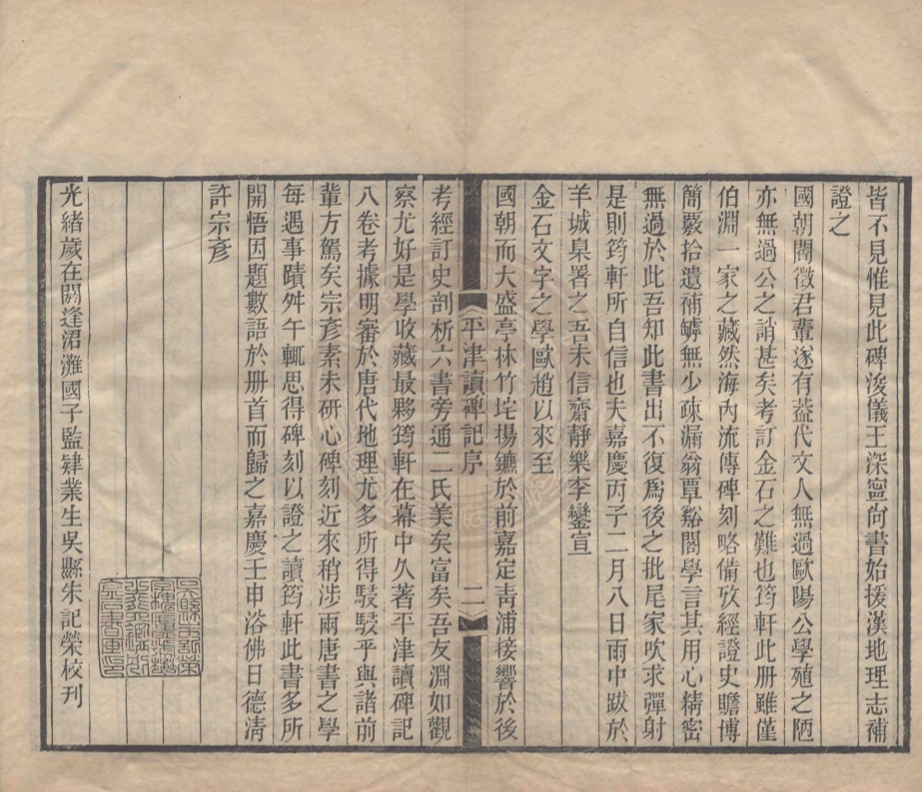 皆不見惟見此碑浚儀王深寧尚書始援漢地理志補
證之
國朝閻徵君輩遂有蓋代文人無過歐陽公學殖之陋
亦無過公之誚甚矣考訂金石之難也筠軒此册雖僅
伯淵一家之藏然海內流傳碑刻略備攷經證史贍博
簡覈拾遺補罅無少疎漏翁覃谿閣學言其用心精密
無過於此吾知此書出不復爲後之批尾家吹求彈射
是則筠軒所自信也夫嘉慶丙子二月八日雨中跋於
羊城臬署之吾未信齋靜樂李鑾宣
金石文字之學歐趙以來至
國朝而大盛亭林竹垞揚鑣於前嘉定靑浦接響於後
平津讀碑記序
二
考經訂史剖析六書旁通二氏美矣富矣吾友淵如觀
察尤好是學收藏最夥筠軒在幕中久著平津讀碑記
八卷考據明審於唐代地理尤多所得駸駸乎與諸前
輩方駕矣宗彥素未研心碑刻近來稍涉兩唐書之學
每遇事蹟舛午輒思得碑刻以證之讀筠軒此書多所
開悟因題數語於册首而歸之嘉慶壬申浴佛日德淸
許宗彥
光緒歲在閼逢涒灘國子監肄業生吳縣朱記榮校刊